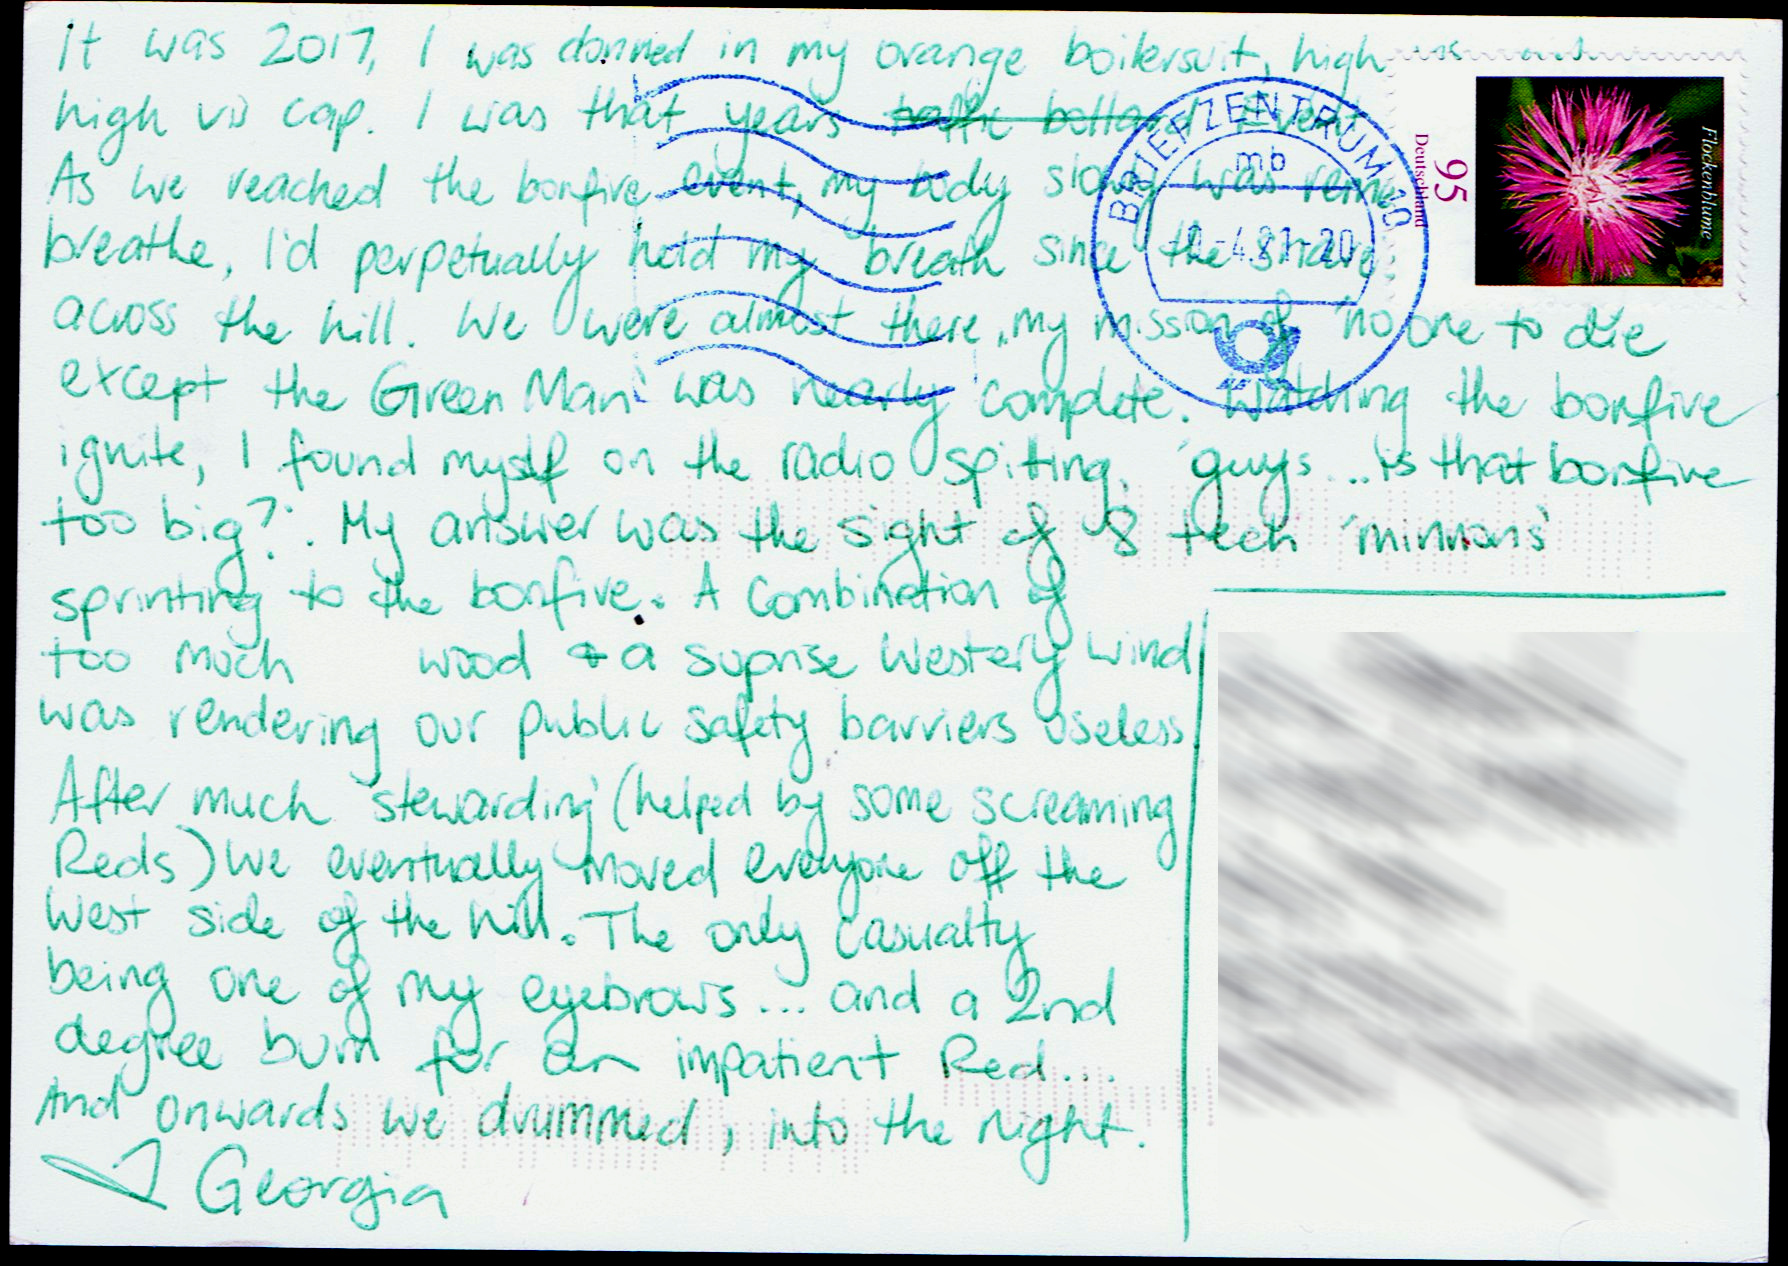 It was 2017, I was donned in my orange boilersuit, high
high vis cap. I was that years traffic bollard Event
As we reached the bonfire event, my body slowly was
breathe, I'd perpetually held my breath since the
across the hill. We were almost there, my mission of 'no one to die
except the Green Man' was nearly complete. Watching the bonfire
ignite, I found myself on the radio spitting, 'guys... is that bonfire
too big?'. My answer was the sight of 8 tech 'minions'
sprinting to the bonfire. A combination of
too much wood & a suprise Westerly wind
was rendering our public safety barriers useless
After much 'stewarding' (helped by some screaming
Reds) we eventually moved everyone off the
West side of the hill. The only casualty
being one of my eyebrows... and a 2nd
degree burn for an impatient Red...
And onwards we drummed, into the night.
Georgia
BRIEFZENTRUM 10
mb
Deutschland
95
Flockenblume